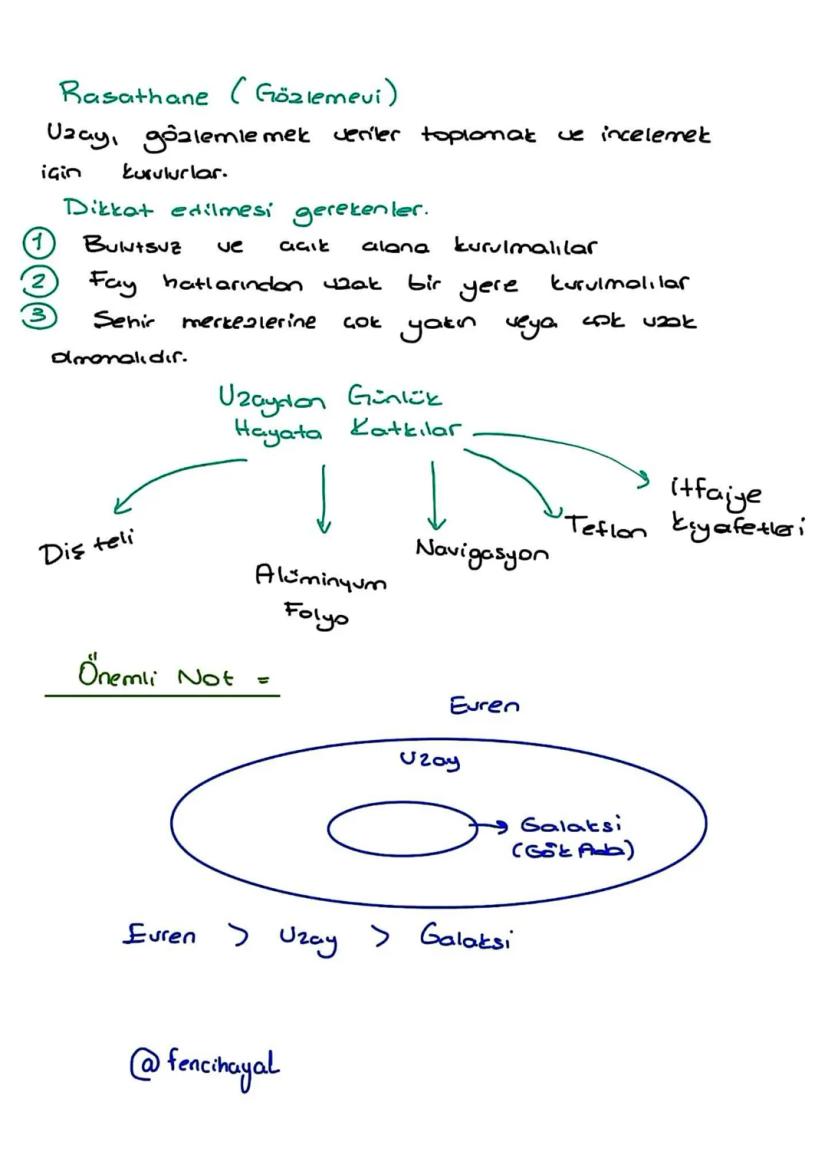 Rasathane (Gözlemevi)
Uzayı gözlemlemek veriler toplamak ve incelemek
için kurulurlar.
Dikkat edilmesi gerekenler.
① Bulutsuz ve açık alana kurulmalılar
② Fay hatlarından uzak bir yere kurulmalılar
③ Şehir merkezlerine çok yakın veya çok uzak
olmamalıdır.
Uzaydan Günlük
Hayata Katkılar
Diş teli
Alüminyum
Folyo
Navigasyon
Teflon
itfaiye
kıyafetleri
Önemli Not =
Evren
Uzay
Galaksi
(Gök Ada)
Evren > Uzay > Galaksi
@fencihayal